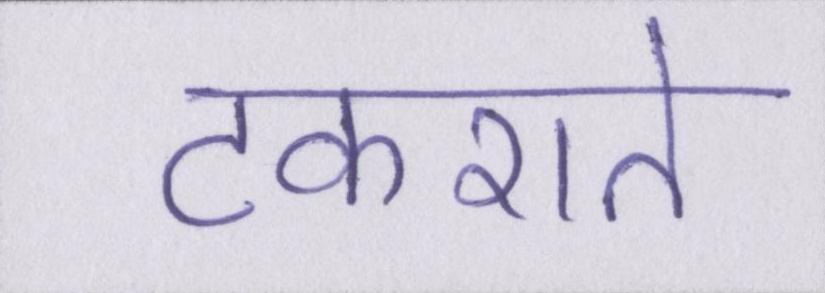 टकराते